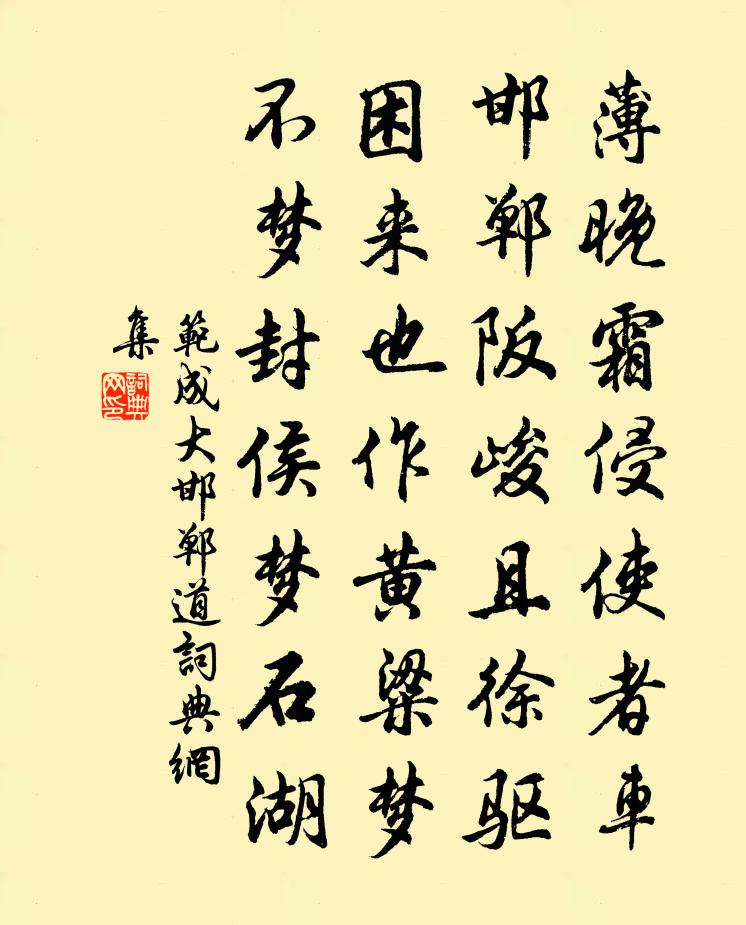 薄晚霜侵使者車
邯郸阪峻且徐驱
困来也作黄粱梦
不梦封侯梦石湖
範成大邯郸道詞典網
集
詞典
网印